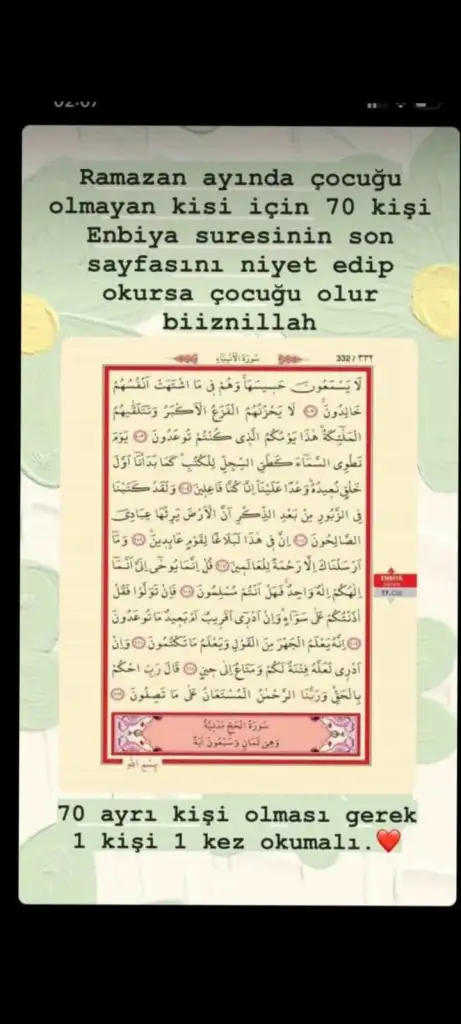 02:07
Ramazan ayında çocuğu
olmayan kisi için 70 kişi
Enbiya suresinin son
sayfasını niyet edip
okursa çocuğu olur
biiznillah
سُورَةُ الْاَنْبِيَٓاءِ 332 / ٣٣٢
لَا يَسْمَعُونَ حَس۪يسَهَاۚ وَهُمْ ف۪ي مَا اشْتَهَتْ اَنْفُسُهُمْ
خَالِدُونَۚ ﴿١٠٢﴾ لَا يَحْزُنُهُمُ الْفَزَعُ الْاَكْبَرُ وَتَتَلَقّٰيهُمُ
الْمَلٰٓئِكَةُۜ هٰذَا يَوْمُكُمُ الَّذ۪ي كُنْتُمْ تُوعَدُونَ ﴿١٠٣﴾ يَوْمَ
نَطْوِي السَّمَٓاءَ كَطَيِّ السِّجِلِّ لِلْكُتُبِۜ كَمَا بَدَأْنَٓا اَوَّلَ
خَلْقٍ نُع۪يدُهُۜ وَعْداً عَلَيْنَاۜ اِنَّا كُنَّا فَاعِل۪ينَ ﴿١٠٤﴾ وَلَقَدْ كَتَبْنَا
فِي الزَّبُورِ مِنْ بَعْدِ الذِّكْرِ اَنَّ الْاَرْضَ يَرِثُهَا عِبَادِيَ
الصَّالِحُونَ ﴿١٠٥﴾ اِنَّ ف۪ي هٰذَا لَبَلَاغاً لِقَوْمٍ عَابِد۪ينَۜ ﴿١٠٦﴾ وَمَٓا
اَرْسَلْنَاكَ اِلَّا رَحْمَةً لِلْعَالَم۪ينَ ﴿١٠٧﴾ قُلْ اِنَّمَا يُوحٰٓى اِلَيَّ اَنَّمَٓا
اِلٰهُكُمْ اِلٰهٌ وَاحِدٌۚ فَهَلْ اَنْتُمْ مُسْلِمُونَ ﴿١٠٨﴾ فَاِنْ تَوَلَّوْا فَقُلْ
اٰذَنْتُكُمْ عَلٰى سَوَٓاءٍۜ وَاِنْ اَدْر۪ٓي اَقَر۪يبٌ اَمْ بَع۪يدٌ مَا تُوعَدُونَ
﴿١٠٩﴾ اِنَّهُ يَعْلَمُ الْجَهْرَ مِنَ الْقَوْلِ وَيَعْلَمُ مَا تَكْتُمُونَ ﴿١١٠﴾ وَاِنْ
اَدْر۪ي لَعَلَّهُ فِتْنَةٌ لَكُمْ وَمَتَاعٌ اِلٰى ح۪ينٍ ﴿١١١﴾ قَالَ رَبِّ احْكُمْ
بِالْحَقِّۜ وَرَبُّنَا الرَّحْمٰنُ الْمُسْتَعَانُ عَلٰى مَا تَصِفُونَ ﴿١١٢﴾
ENBİYA
17. Cüz
سُورَةُ الْحَجِّ مَدَنِيَّةٌ
وَهِيَ ثَمَانٍ وَسَبْعُونَ اٰيَةً
70 ayrı kişi olması gerek
1 kişi 1 kez okumalı.❤️